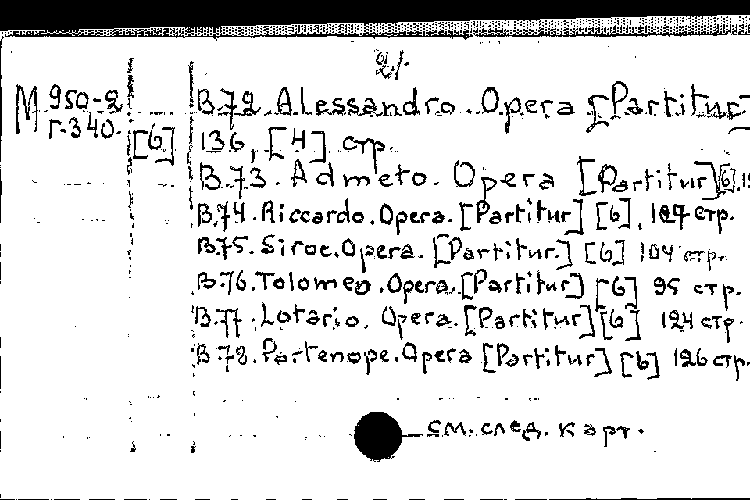 21.
М 950-2 В.72. Alessandro. Opera [Partitur]
Г.340. [6] 136, [4] стр.
В.73. Admeto. Opera [Partitur] [6],
В.74. Riccardo. Opera. [Partitur] [6], 127 стр.
В.75. Siroe. Opera. [Partitur.] [6] 104 стр.
В.76. Tolomeo. Opera. [Partitur] [6] 95 стр.
В.77. Lotario. Opera. [Partitur] [6] 124 стр.
В.78. Partenope. Opera [Partitur] [6] 126 стр.
см. след. карт.